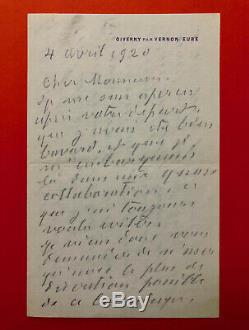 GIVERNY PAR VERNON, EURE
4 avril 1920
Cher Monsieur
Je me suis aperçu
après votre départ
que j'avais été bien
bavard et que je
m'embarquais
là dans une
collaboration, ce
que j'ai toujours
voulu éviter.
Je viens donc vous
demander de n'user
qu'avec le plus de
discrétion possible
de ce